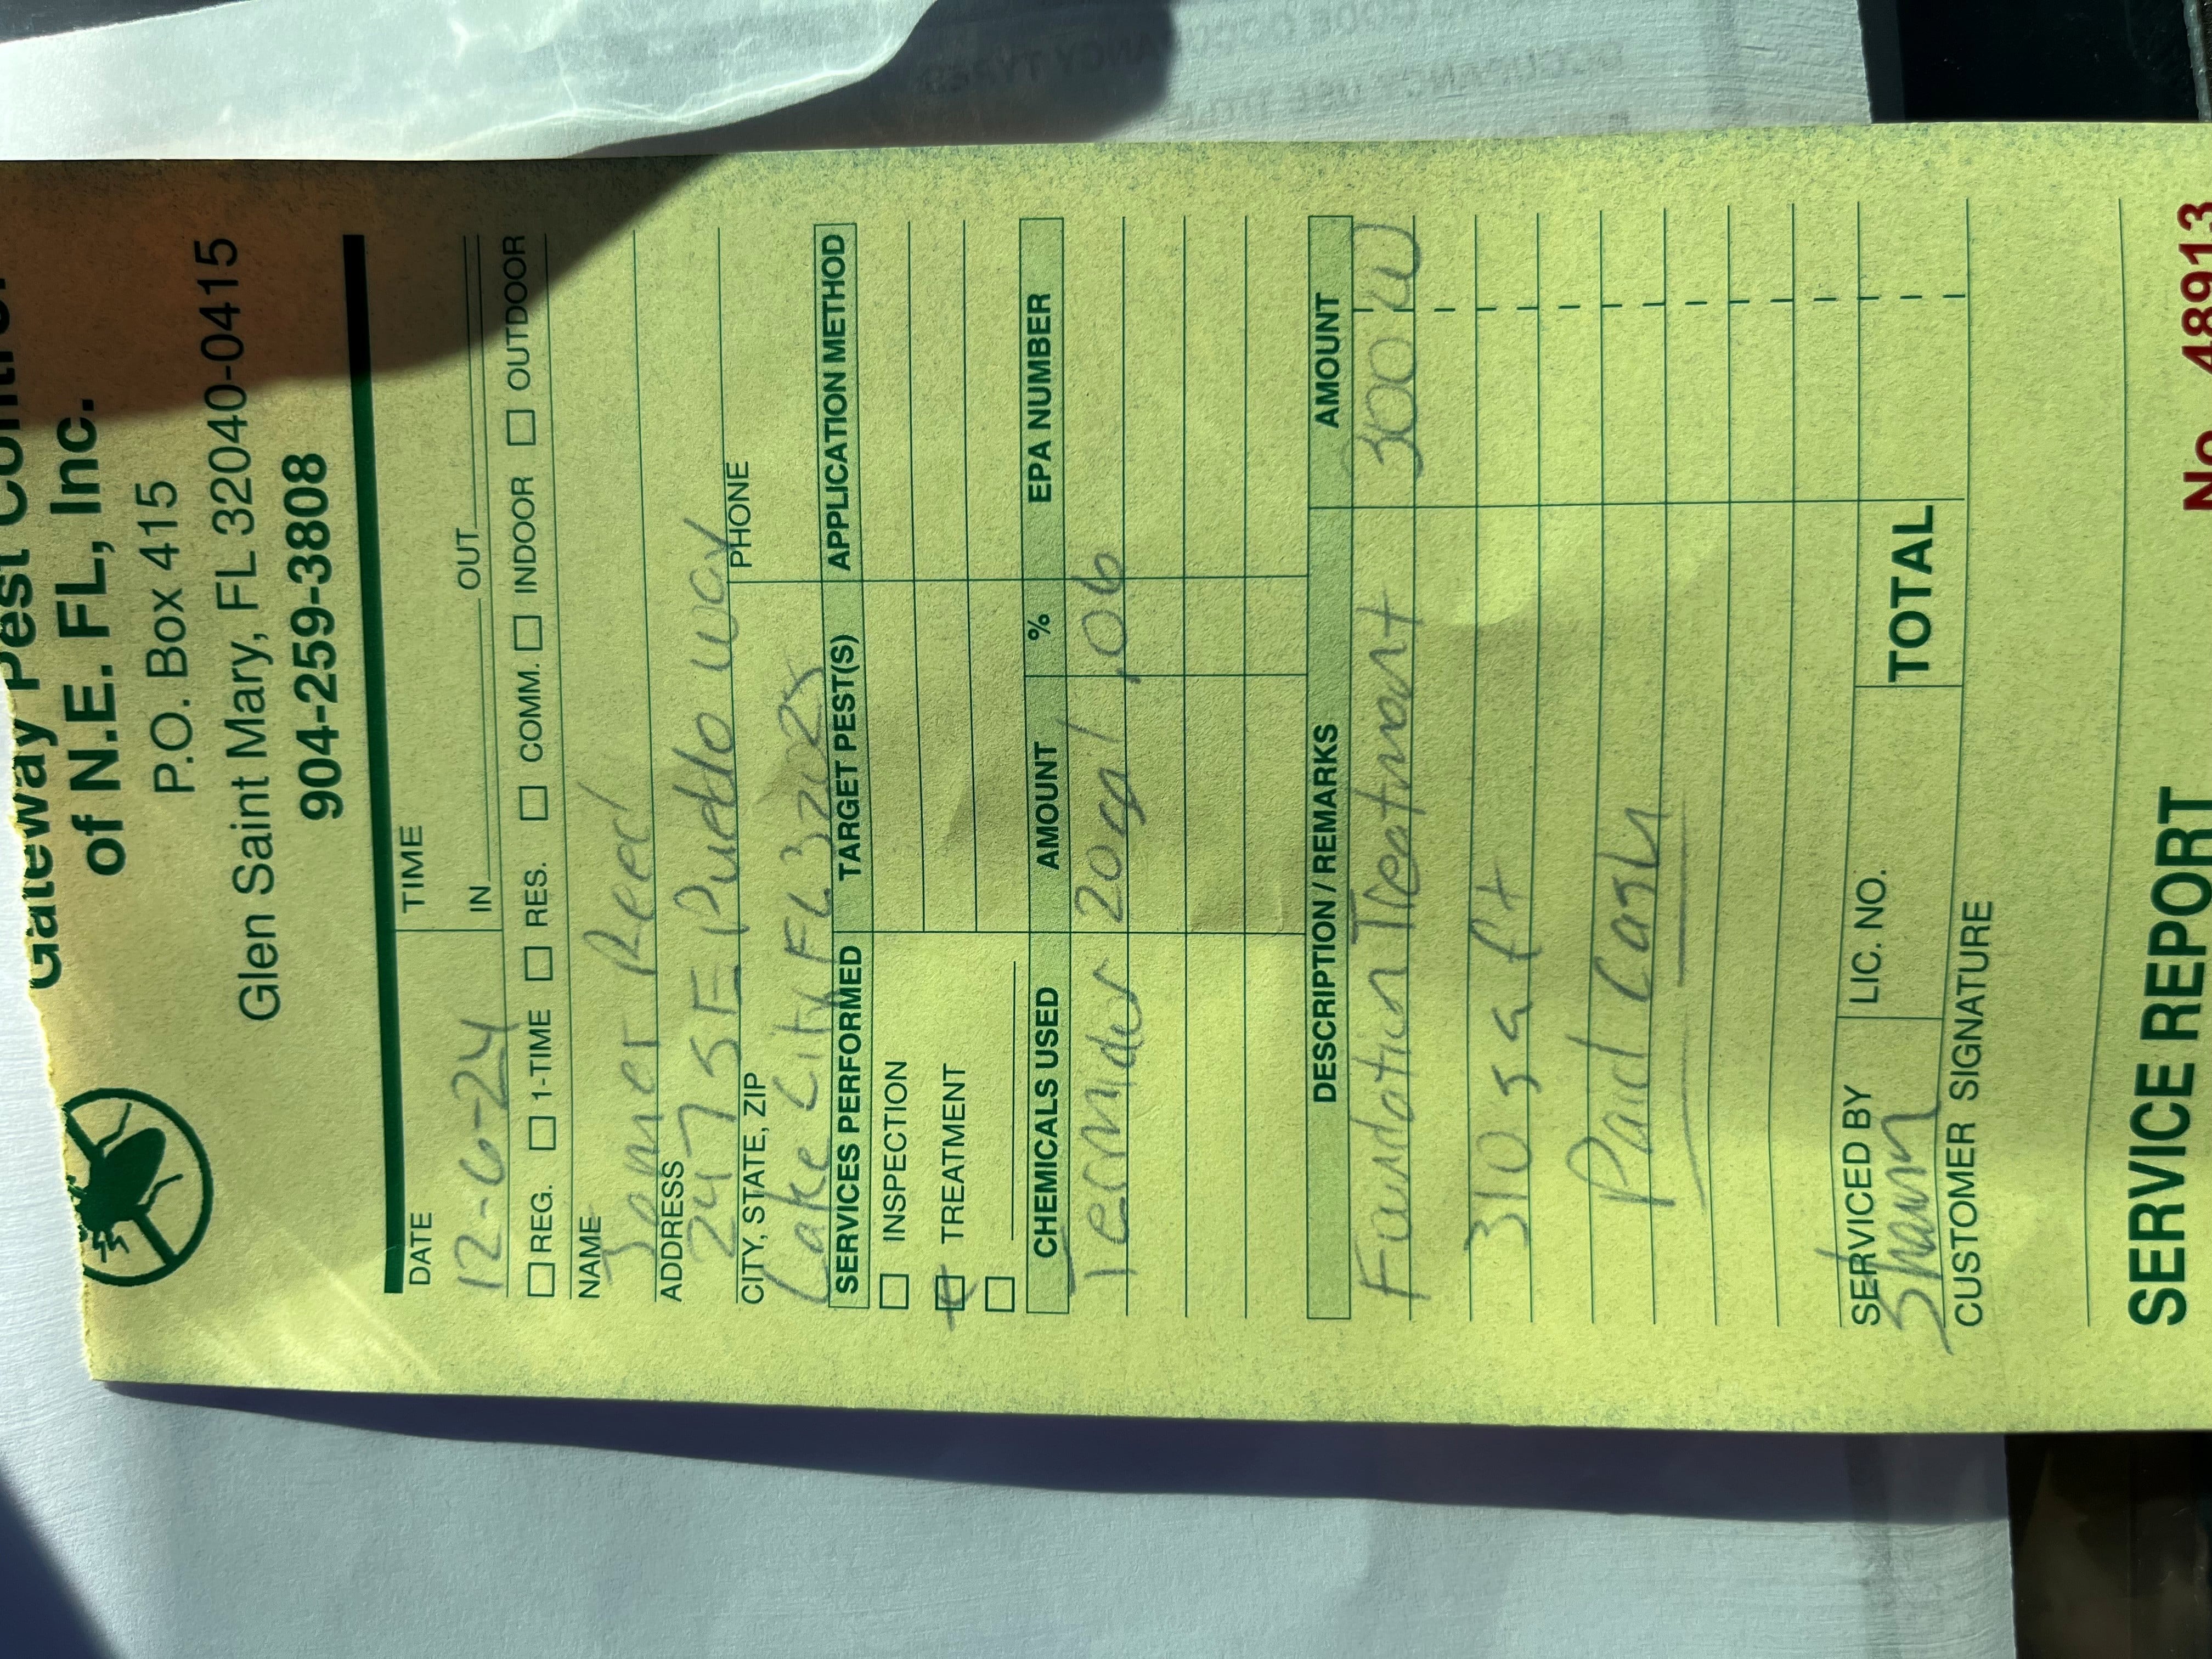 Gateway Pest Control
of N.E. FL, Inc.
P.O. Box 415
Glen Saint Mary, FL 32040-0415
904-259-3808
DATE TIME
12-6-24 IN OUT
REG. 1-TIME RES. COMM. INDOOR OUTDOOR
NAME
James Reed
ADDRESS
247 SE Pueblo way
CITY, STATE, ZIP PHONE
Lake City FL 32025
SERVICES PERFORMED TARGET PEST(S) APPLICATION METHOD
INSPECTION
TREATMENT
CHEMICALS USED AMOUNT % EPA NUMBER
Termidor 20 gal .06
DESCRIPTION / REMARKS AMOUNT
Foundation Treatment 300
310 sq ft
Paid Cash
SERVICED BY LIC. NO. TOTAL
Shawn
CUSTOMER SIGNATURE
SERVICE REPORT No. 48913
OCCUPANCY TYPES